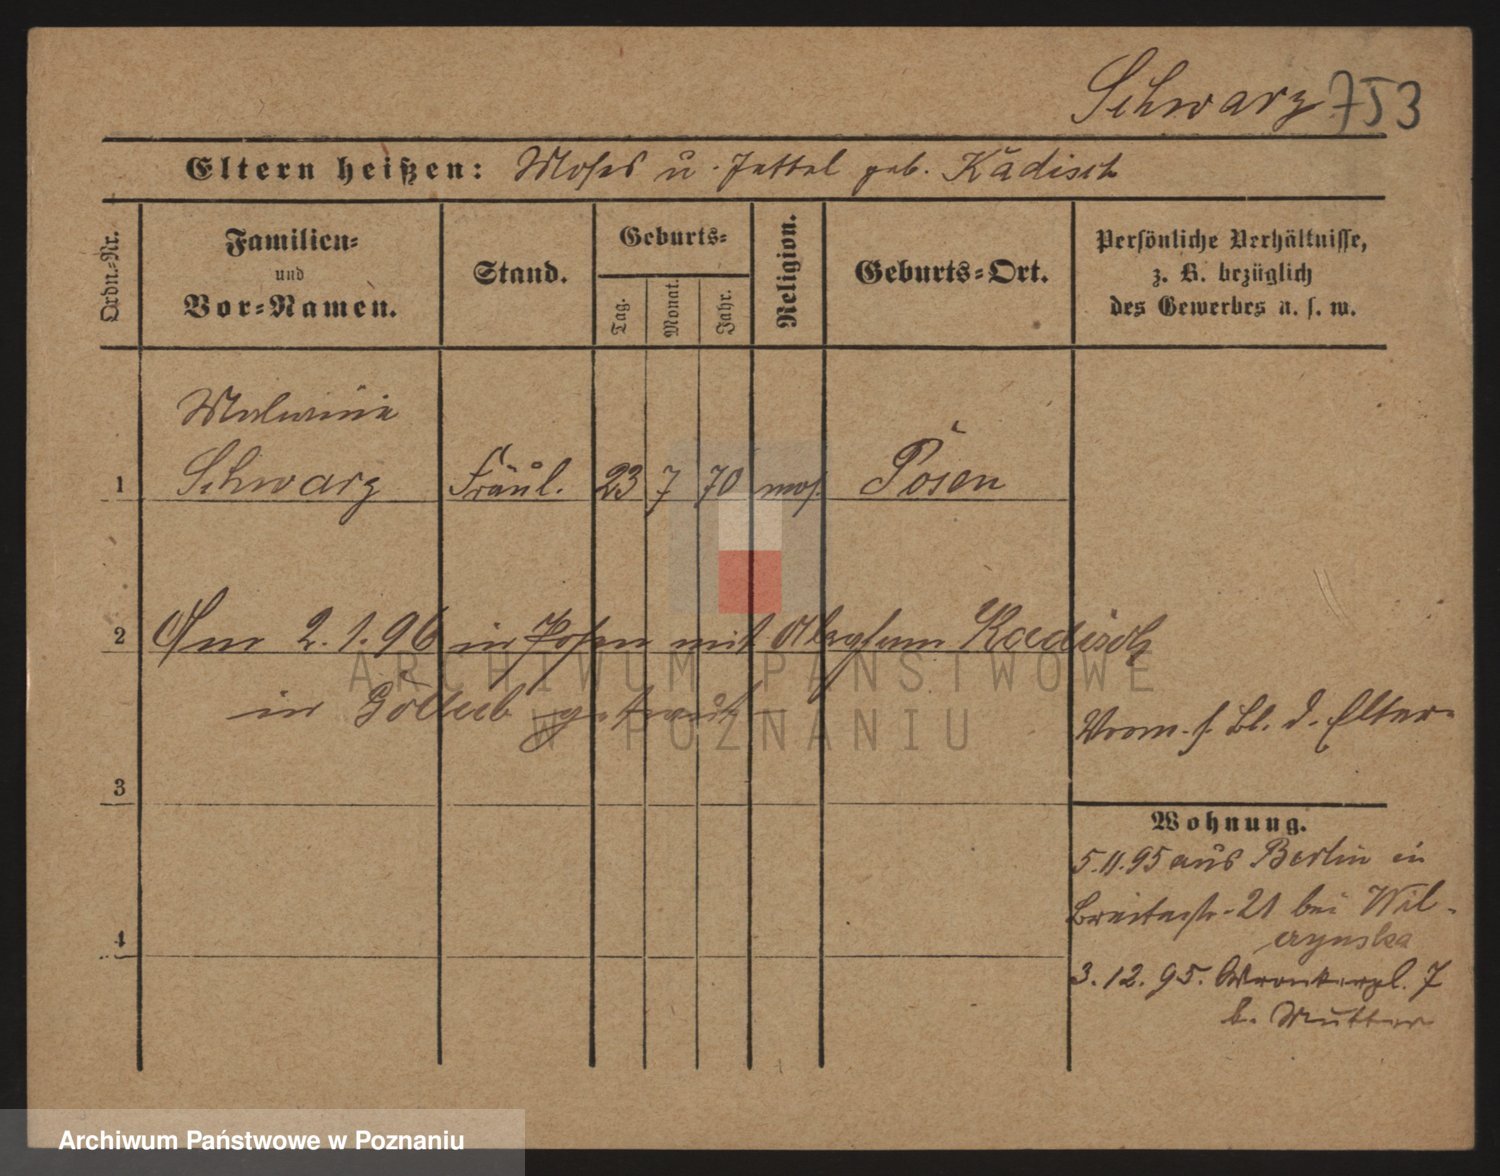 Schwarz 753
Eltern heißen: Moses u. Jettel geb. Kadisch
Ordn.-Nr.
Familien-
und
Vor-Namen.
Stand.
Geburts-
Tag.
Monat.
Jahr.
Religion.
Geburts-Ort.
Persönliche Verhältnisse,
z. B. bezüglich
des Gewerbes u. s. w.
Malwine
1 Schwarz Fräul. 23 7 70 mos. Posen
2 Am 2.1.96 in Posen mit Abraham Kadisch
in getraut
3
Vrom. s. Bl. d. Eltern
Wohnung.
5.11.95 aus Berlin in
Breitestr. 21 bei Wil-
czynska
4
3.12.95. Wronkerpl. 7
b. Mutter
ARCHIWUM PAŃSTWOWE
W POZNANIU
Archiwum Państwowe w Poznaniu